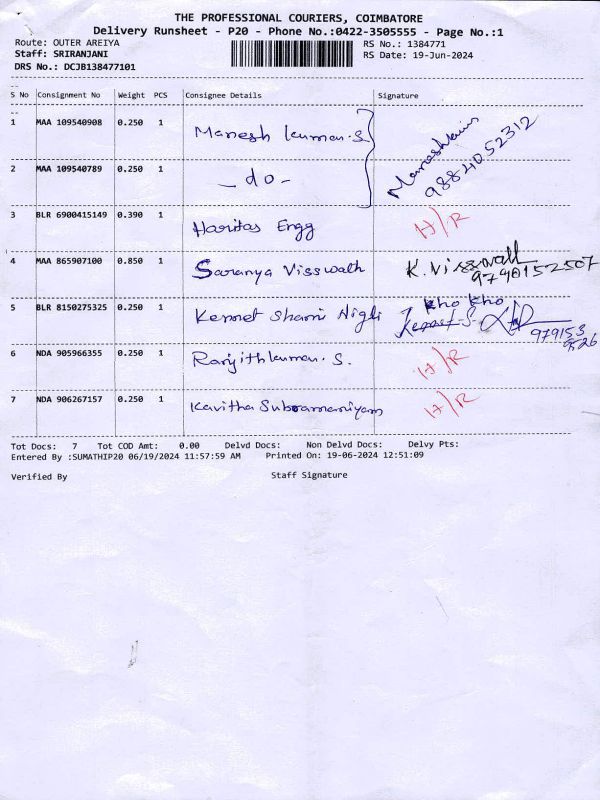 THE PROFESSIONAL COURIERS, COIMBATORE
Delivery Runsheet - P20 - Phone No.:0422-3505555 - Page No.:1
Route: OUTER AREIYA RS No.: 1384771
Staff: SRIRANJANI RS Date: 19-Jun-2024
DRS No.: DCJB138477101
S No Consignment No Weight PCS Consignee Details Signature
1 MAA 109540908 0.250 1 Manesh kumar.S. Maneshkumar 9884052312
2 MAA 109540789 0.250 1 - do -
3 BLR 6900415149 0.390 1 Haritas Engg H/R
4 MAA 865907100 0.850 1 Saranya Visswath K. Visswath 9790152507
5 BLR 8150275325 0.250 1 Kennet Sham Nigli Kho Kho Kennet-S 979153 9526
6 NDA 905966355 0.250 1 Ranjithkumar. S. H/R
7 NDA 906267157 0.250 1 Kavitha Subramaniyam H/R
Tot Docs: 7 Tot COD Amt: 0.00 Delvd Docs: Non Delvd Docs: Delvy Pts:
Entered By :SUMATHIP20 06/19/2024 11:57:59 AM Printed On: 19-06-2024 12:51:09
Verified By Staff Signature